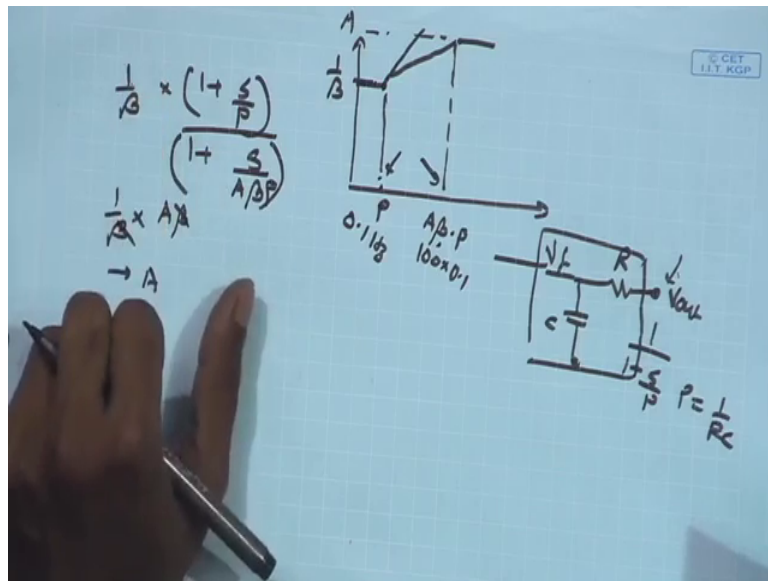 © CET
I.I.T. KGP
1/β × (1 + S/P)
(1 + S/AβP)
1/β × Aβ
→ A
A
1/β
P
0.1 Hz
Aβ.P
100×0.1
Vf
R
Vout
C
1
1+ S/P
P = 1/RC